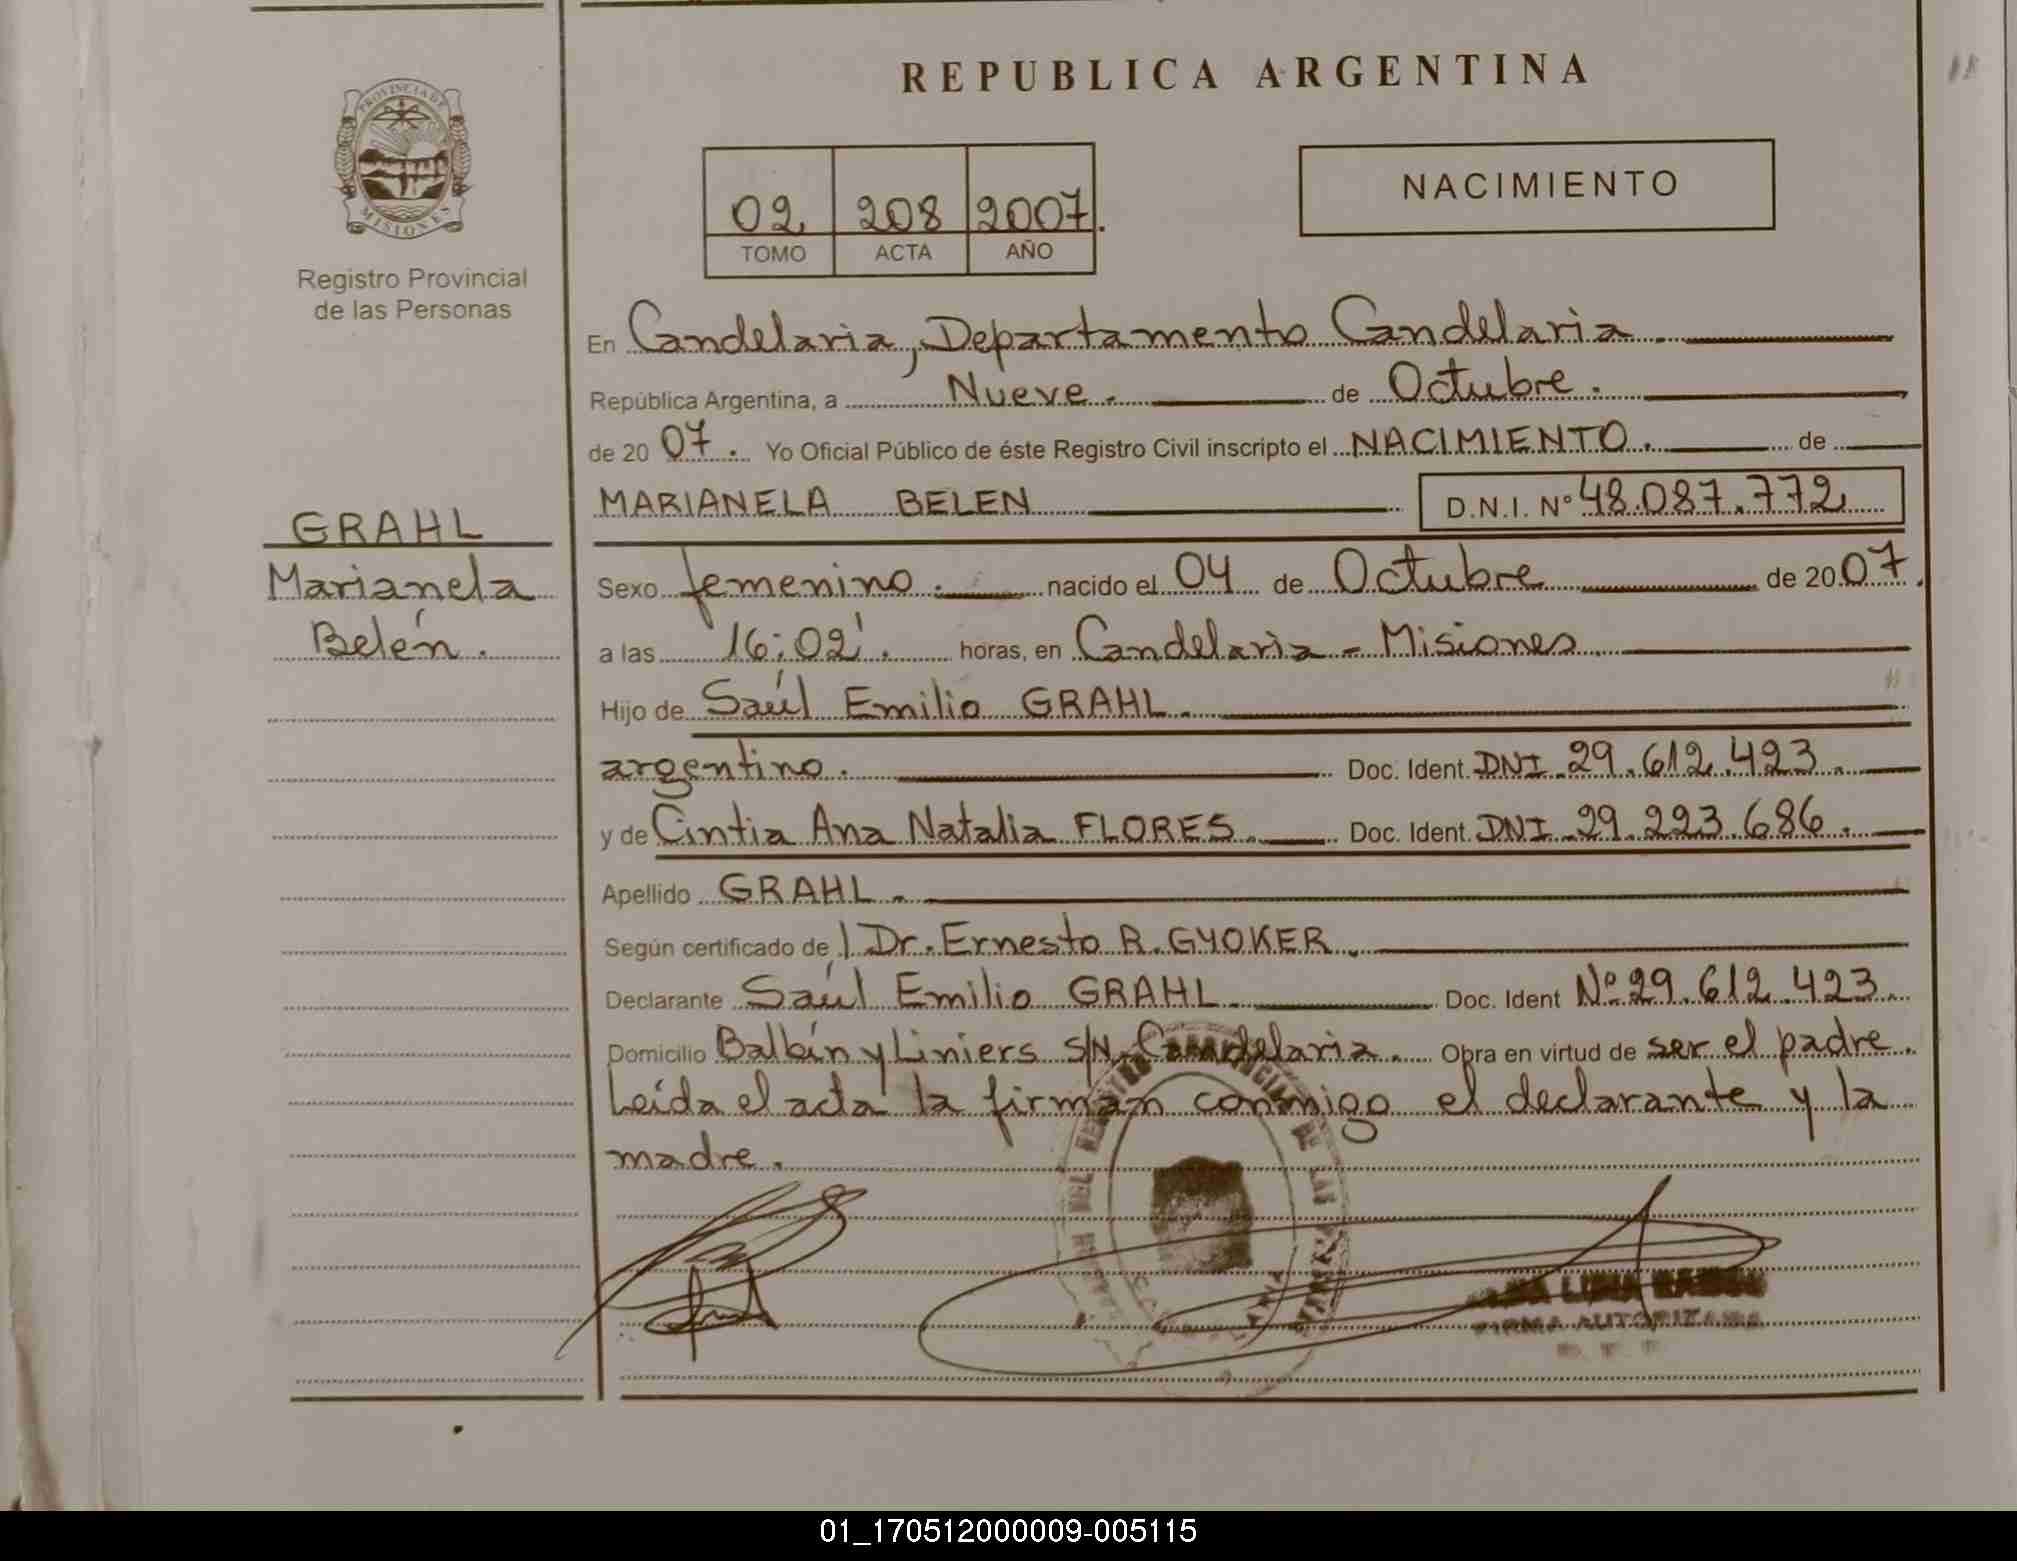 REPUBLICA ARGENTINA
PROVINCIA DE
MISIONES
Registro Provincial
de las Personas
NACIMIENTO
02 208 2007.
TOMO ACTA AÑO
En Candelaria, Departamento Candelaria.
República Argentina, a Nueve. de Octubre.
de 2007. Yo Oficial Público de éste Registro Civil inscripto el NACIMIENTO. de
MARIANELA BELEN D.N.I. Nº 48.087.772
GRAHL
Marianela
Belén.
Sexo femenino. nacido el 04 de Octubre de 2007.
a las 16:02'. horas, en Candelaria - Misiones.
Hijo de Saúl Emilio GRAHL.
argentino. Doc. Ident. DNI 29.612.423.
y de Cintia Ana Natalia FLORES. Doc. Ident. DNI 29.223.686.
Apellido GRAHL.
Según certificado de l Dr. Ernesto R. GYOKER.
Declarante Saúl Emilio GRAHL. Doc. Ident Nº 29.612.423.
Domicilio Balbín y Liniers S/N. Candelaria. Obra en virtud de ser el padre.
Leída el acta la firman conmigo el declarante y la
madre.
FIRMA AUTORIZADA
01_170512000009-005115